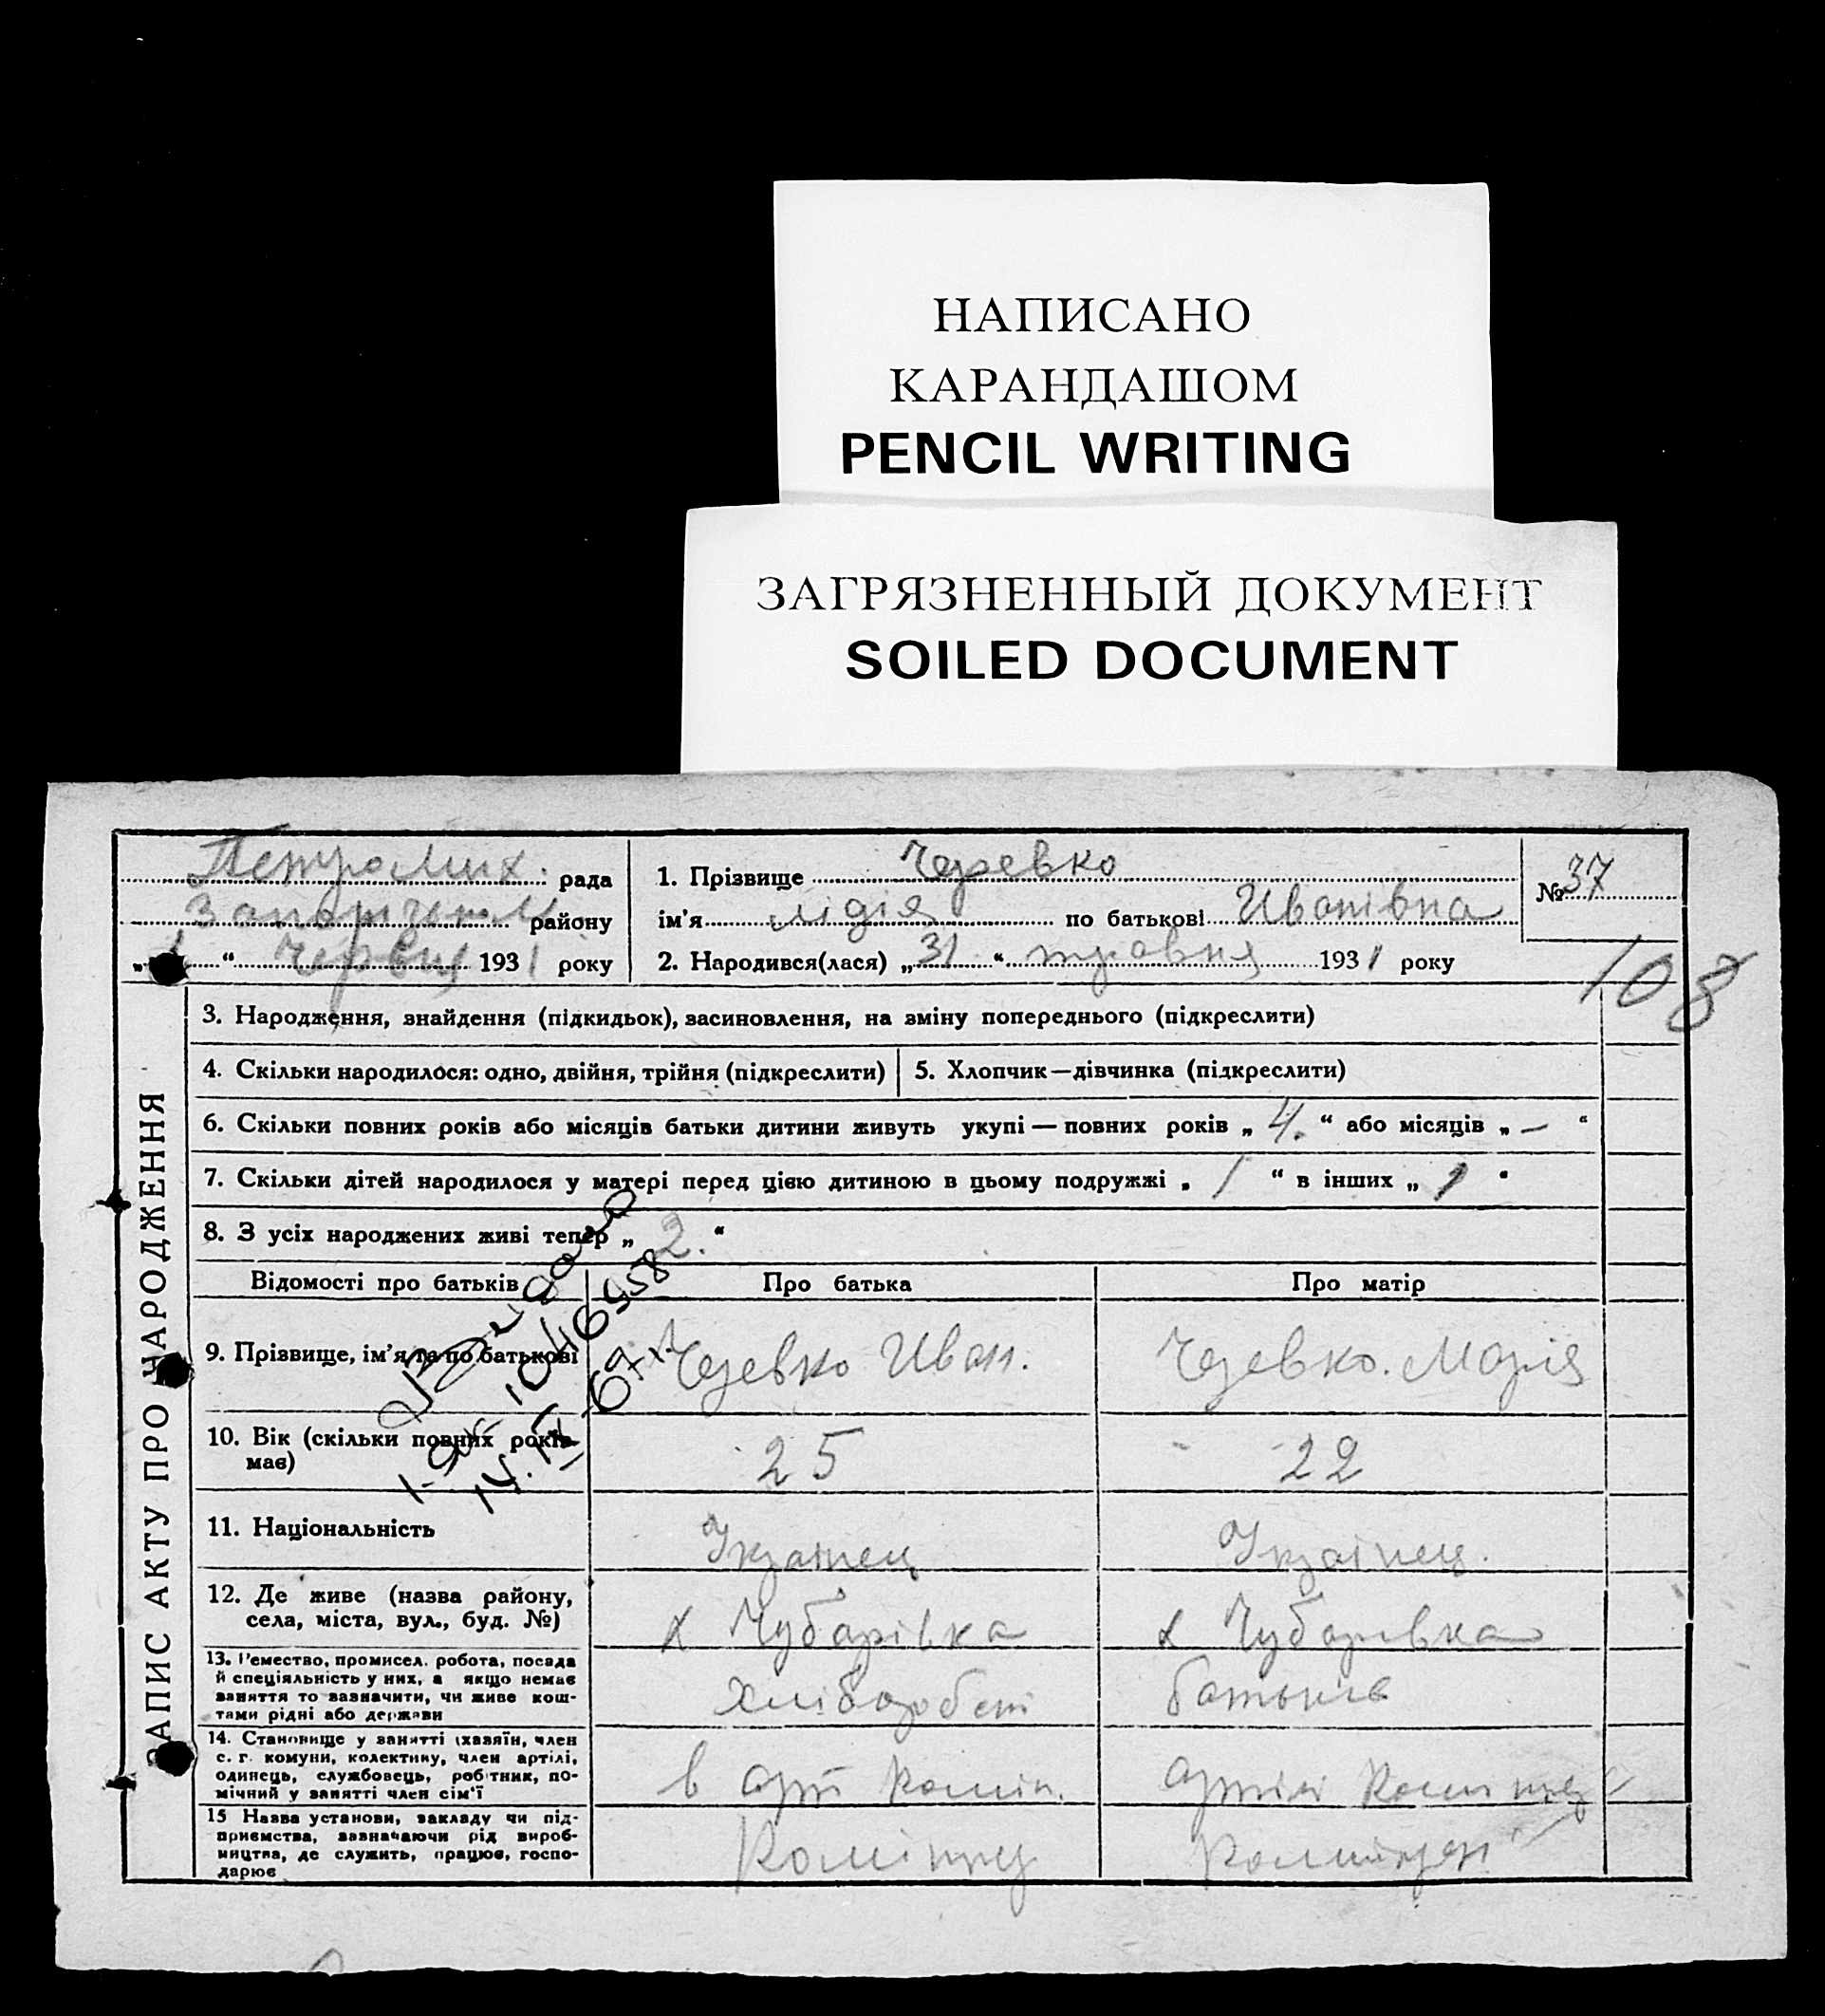 НАПИСАНО
КАРАНДАШОМ
PENCIL WRITING
ЗАГРЯЗНЕННЫЙ ДОКУМЕНТ
SOILED DOCUMENT
ПетроМих. рада
району
„ “ Червня 1931 року
1. Прізвище Черевко
ім'я Лідія по батькові Иванівна
2. Народився(лася) „31“ травня 1931 року
№ 37
108
ЗАПИС АКТУ ПРО НАРОДЖЕННЯ
3. Народження, знайдення (підкидьок), засиновлення, на зміну попереднього (підкреслити)
4. Скільки народилося: одно, двійня, трійня (підкреслити)
5. Хлопчик—дівчинка (підкреслити)
6. Скільки повних років або місяців батьки дитини живуть укупі — повних років „ 4. “ або місяців „ — “
7. Скільки дітей народилося у матері перед цією дитиною в цьому подружжі „ 1 “ в інших „ 1 “
8. З усіх народжених живі тепер „ 2. “
Відомості про батьків
Про батька
Про матір
9. Прізвище, ім'я та по батькові
Черевко Иван.
Черевко. Марія
10. Вік (скільки повних років має)
25
22
11. Національність
Українец
Українец.
12. Де живе (назва району,
села, міста, вул., буд. №)
х Чубарівка
х Чубаревка
13. Ремество, промисел, робота, посада
й спеціяльність у них, а якщо немає
заняття то зазначити, чи живе кош-
тами рідні або держави
14. Становище у занятті (хазяїн, член
с. г. комуни, колективу, член артілі,
одинець, службовець, робітник, по-
мічний у занятті член сім'ї
в арт Комін.
15 Назва установи, закладу чи під-
приємства, зазначаючи рід вироб-
ництва, де служить, працює, госпо-
дарює